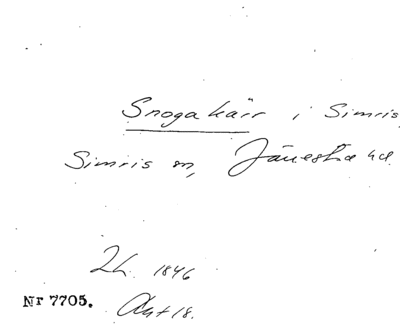 Snogakärr i Simris
Simris sn, Järrestads hd
Lh. 1846
Nr 7705. Akt 18.